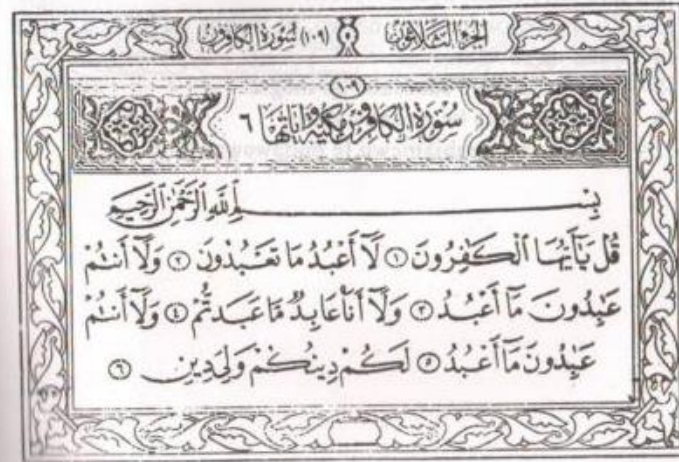 الجزء الثلاثون (١٠٩) سُورَة الكافرون
١٠٩
سُورَة الكافرون مكية وآياتها ٦
بِسْمِ اللَّهِ الرَّحْمَٰنِ الرَّحِيمِ
قُلْ يَٰٓأَيُّهَا الْكَٰفِرُونَ ١ لَآ أَعْبُدُ مَا تَعْبُدُونَ ٢ وَلَآ أَنتُمْ
عَٰبِدُونَ مَآ أَعْبُدُ ٣ وَلَآ أَنَا۠ عَابِدٌ مَّا عَبَدتُّمْ ٤ وَلَآ أَنتُمْ
عَٰبِدُونَ مَآ أَعْبُدُ ٥ لَكُمْ دِينُكُمْ وَلِيَ دِينِ ٦